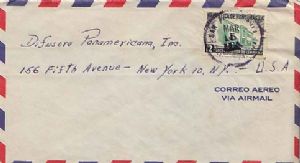 Difusora Panamericana, Inc.
156 Fifth Avenue - New York 10, N.Y. - U.S.A
MAR
CORREO AEREO
VIA AIRMAIL